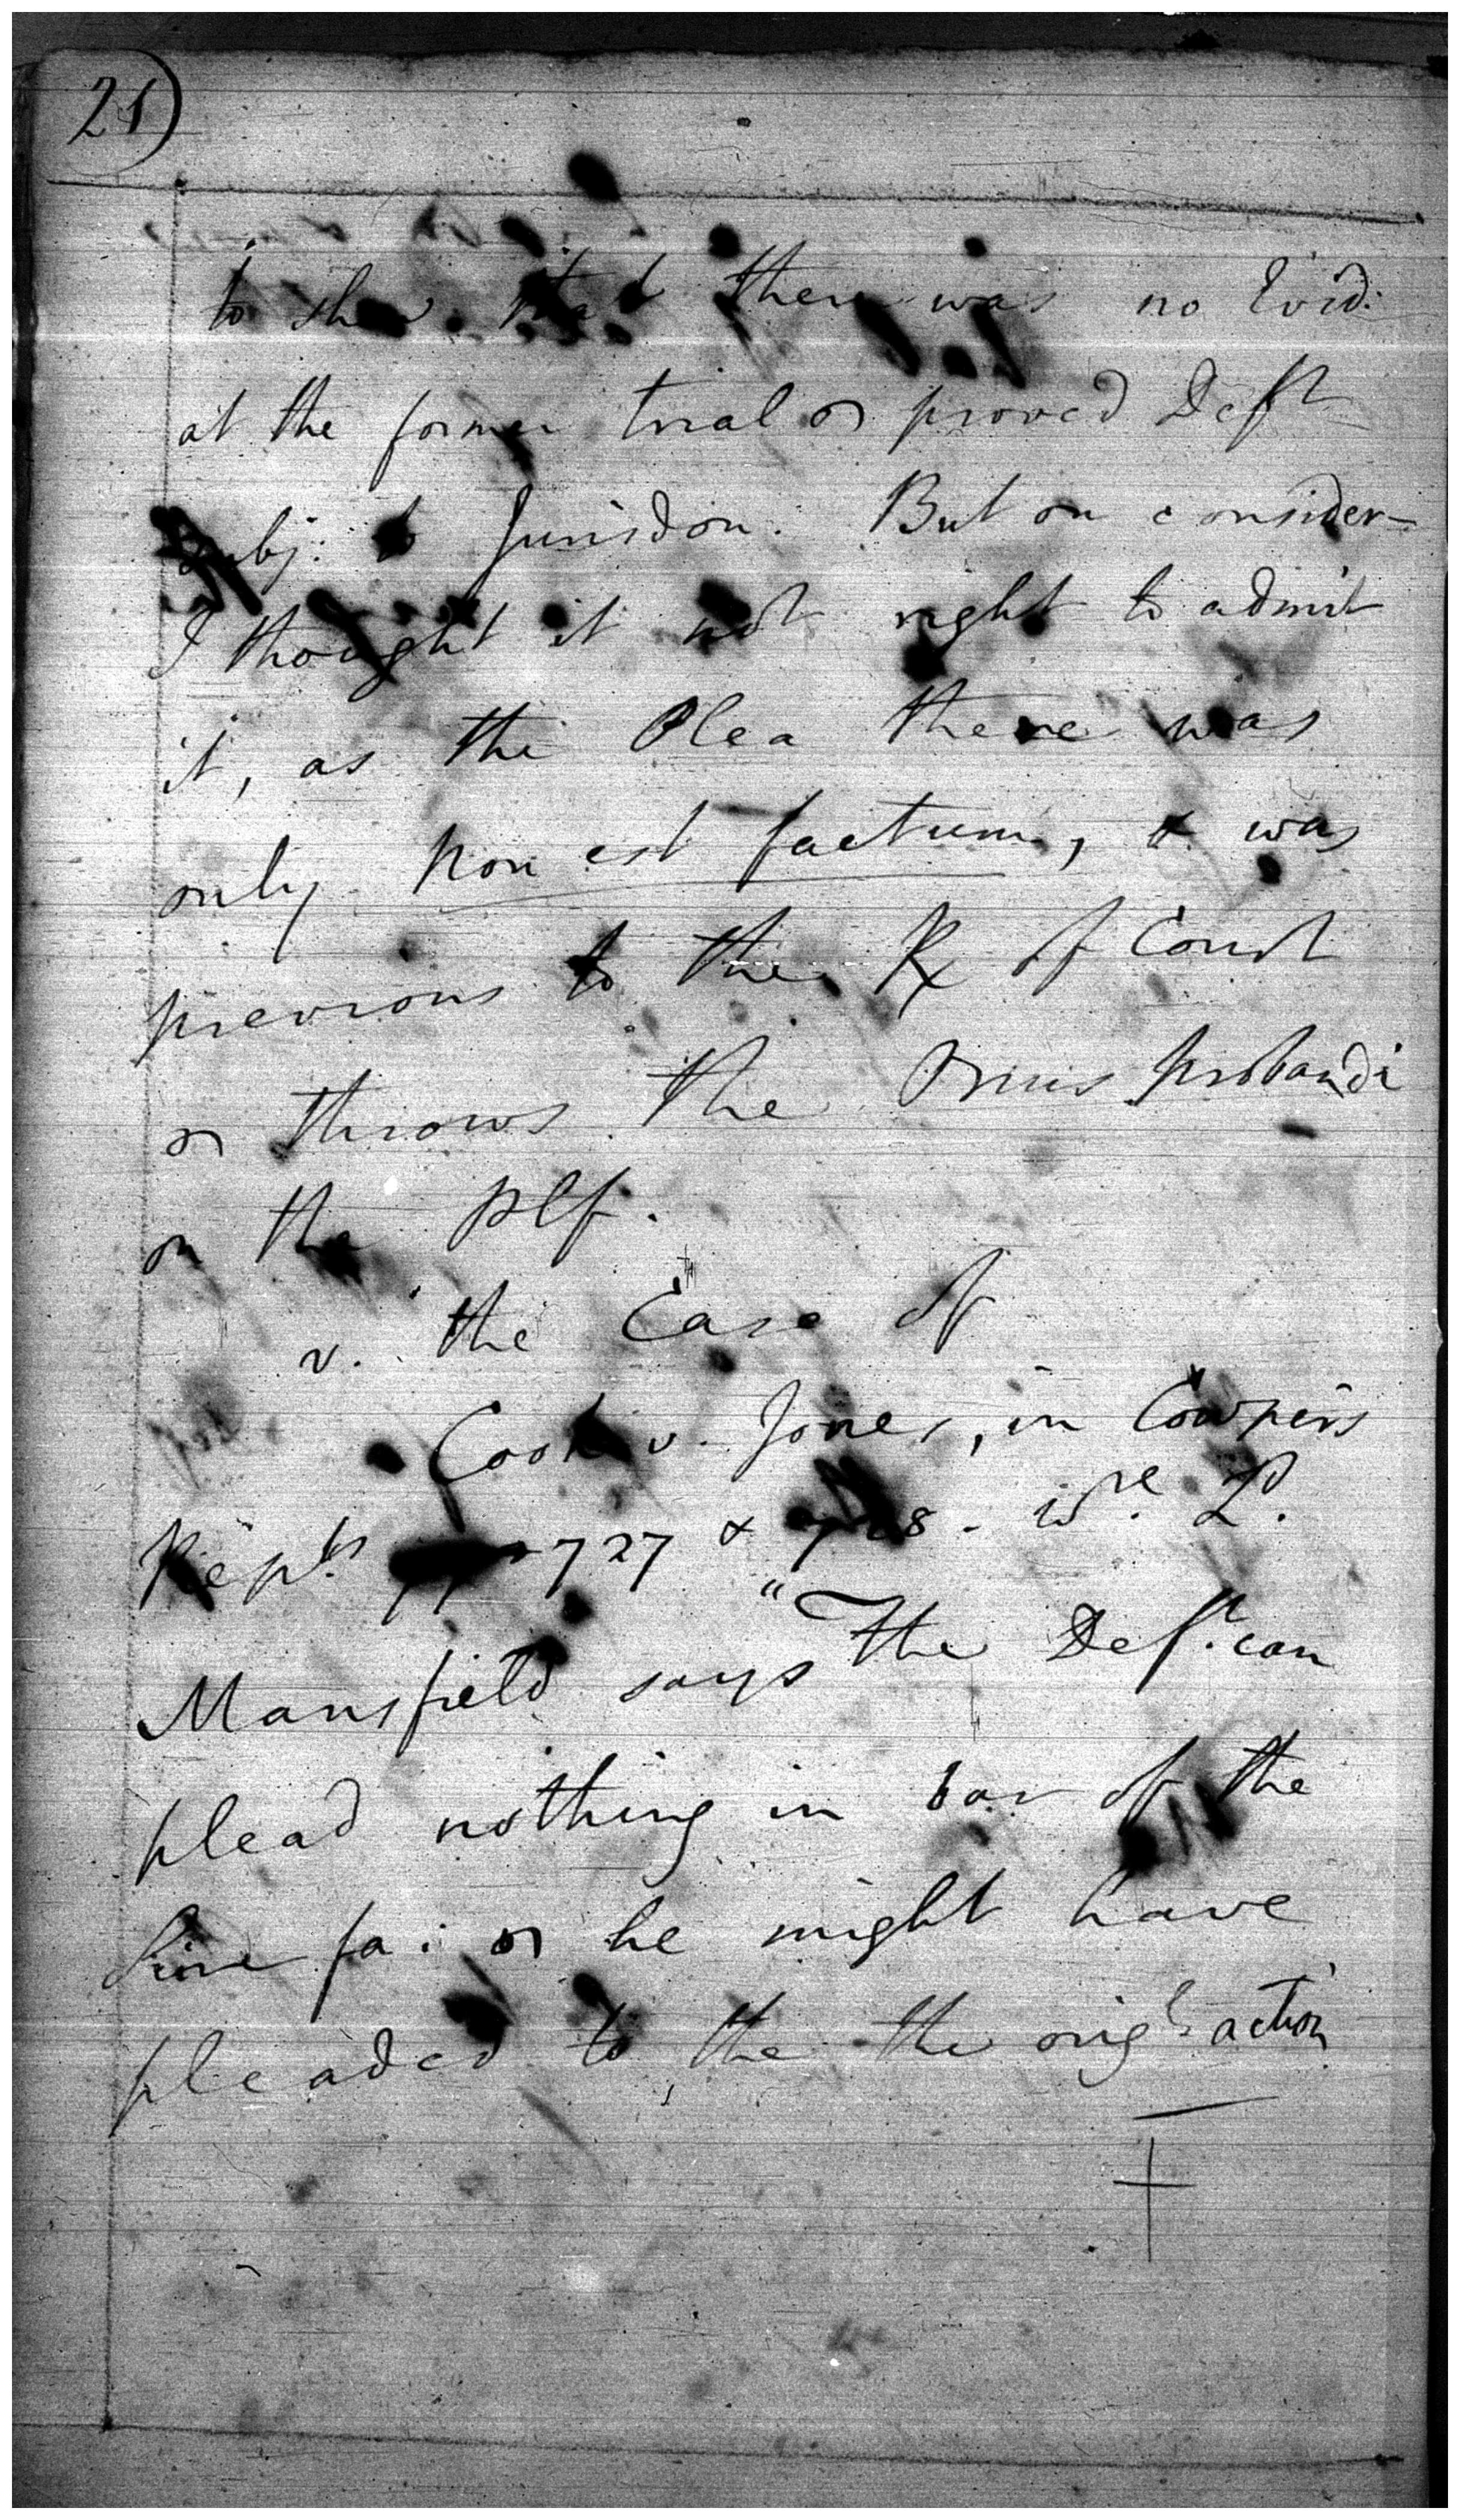 21)
to shew that there was no Evid:
at the former trial or proved Deft
subj: to Jurisdon. But on consider-
I thought it not right to admit
it, as the Plea there was
only non est factum, & was
previous to the Rx of Court
or throws the Onus probandi
on the Plf.
v. the Case of
Cook v. Jones, in Cowper's
Repts pp 727 & 728. wre Ld.
Mansfield says "The Deft. can
plead nothing in bar of the
Scire fa: or he might have
pleaded to the the origl. action